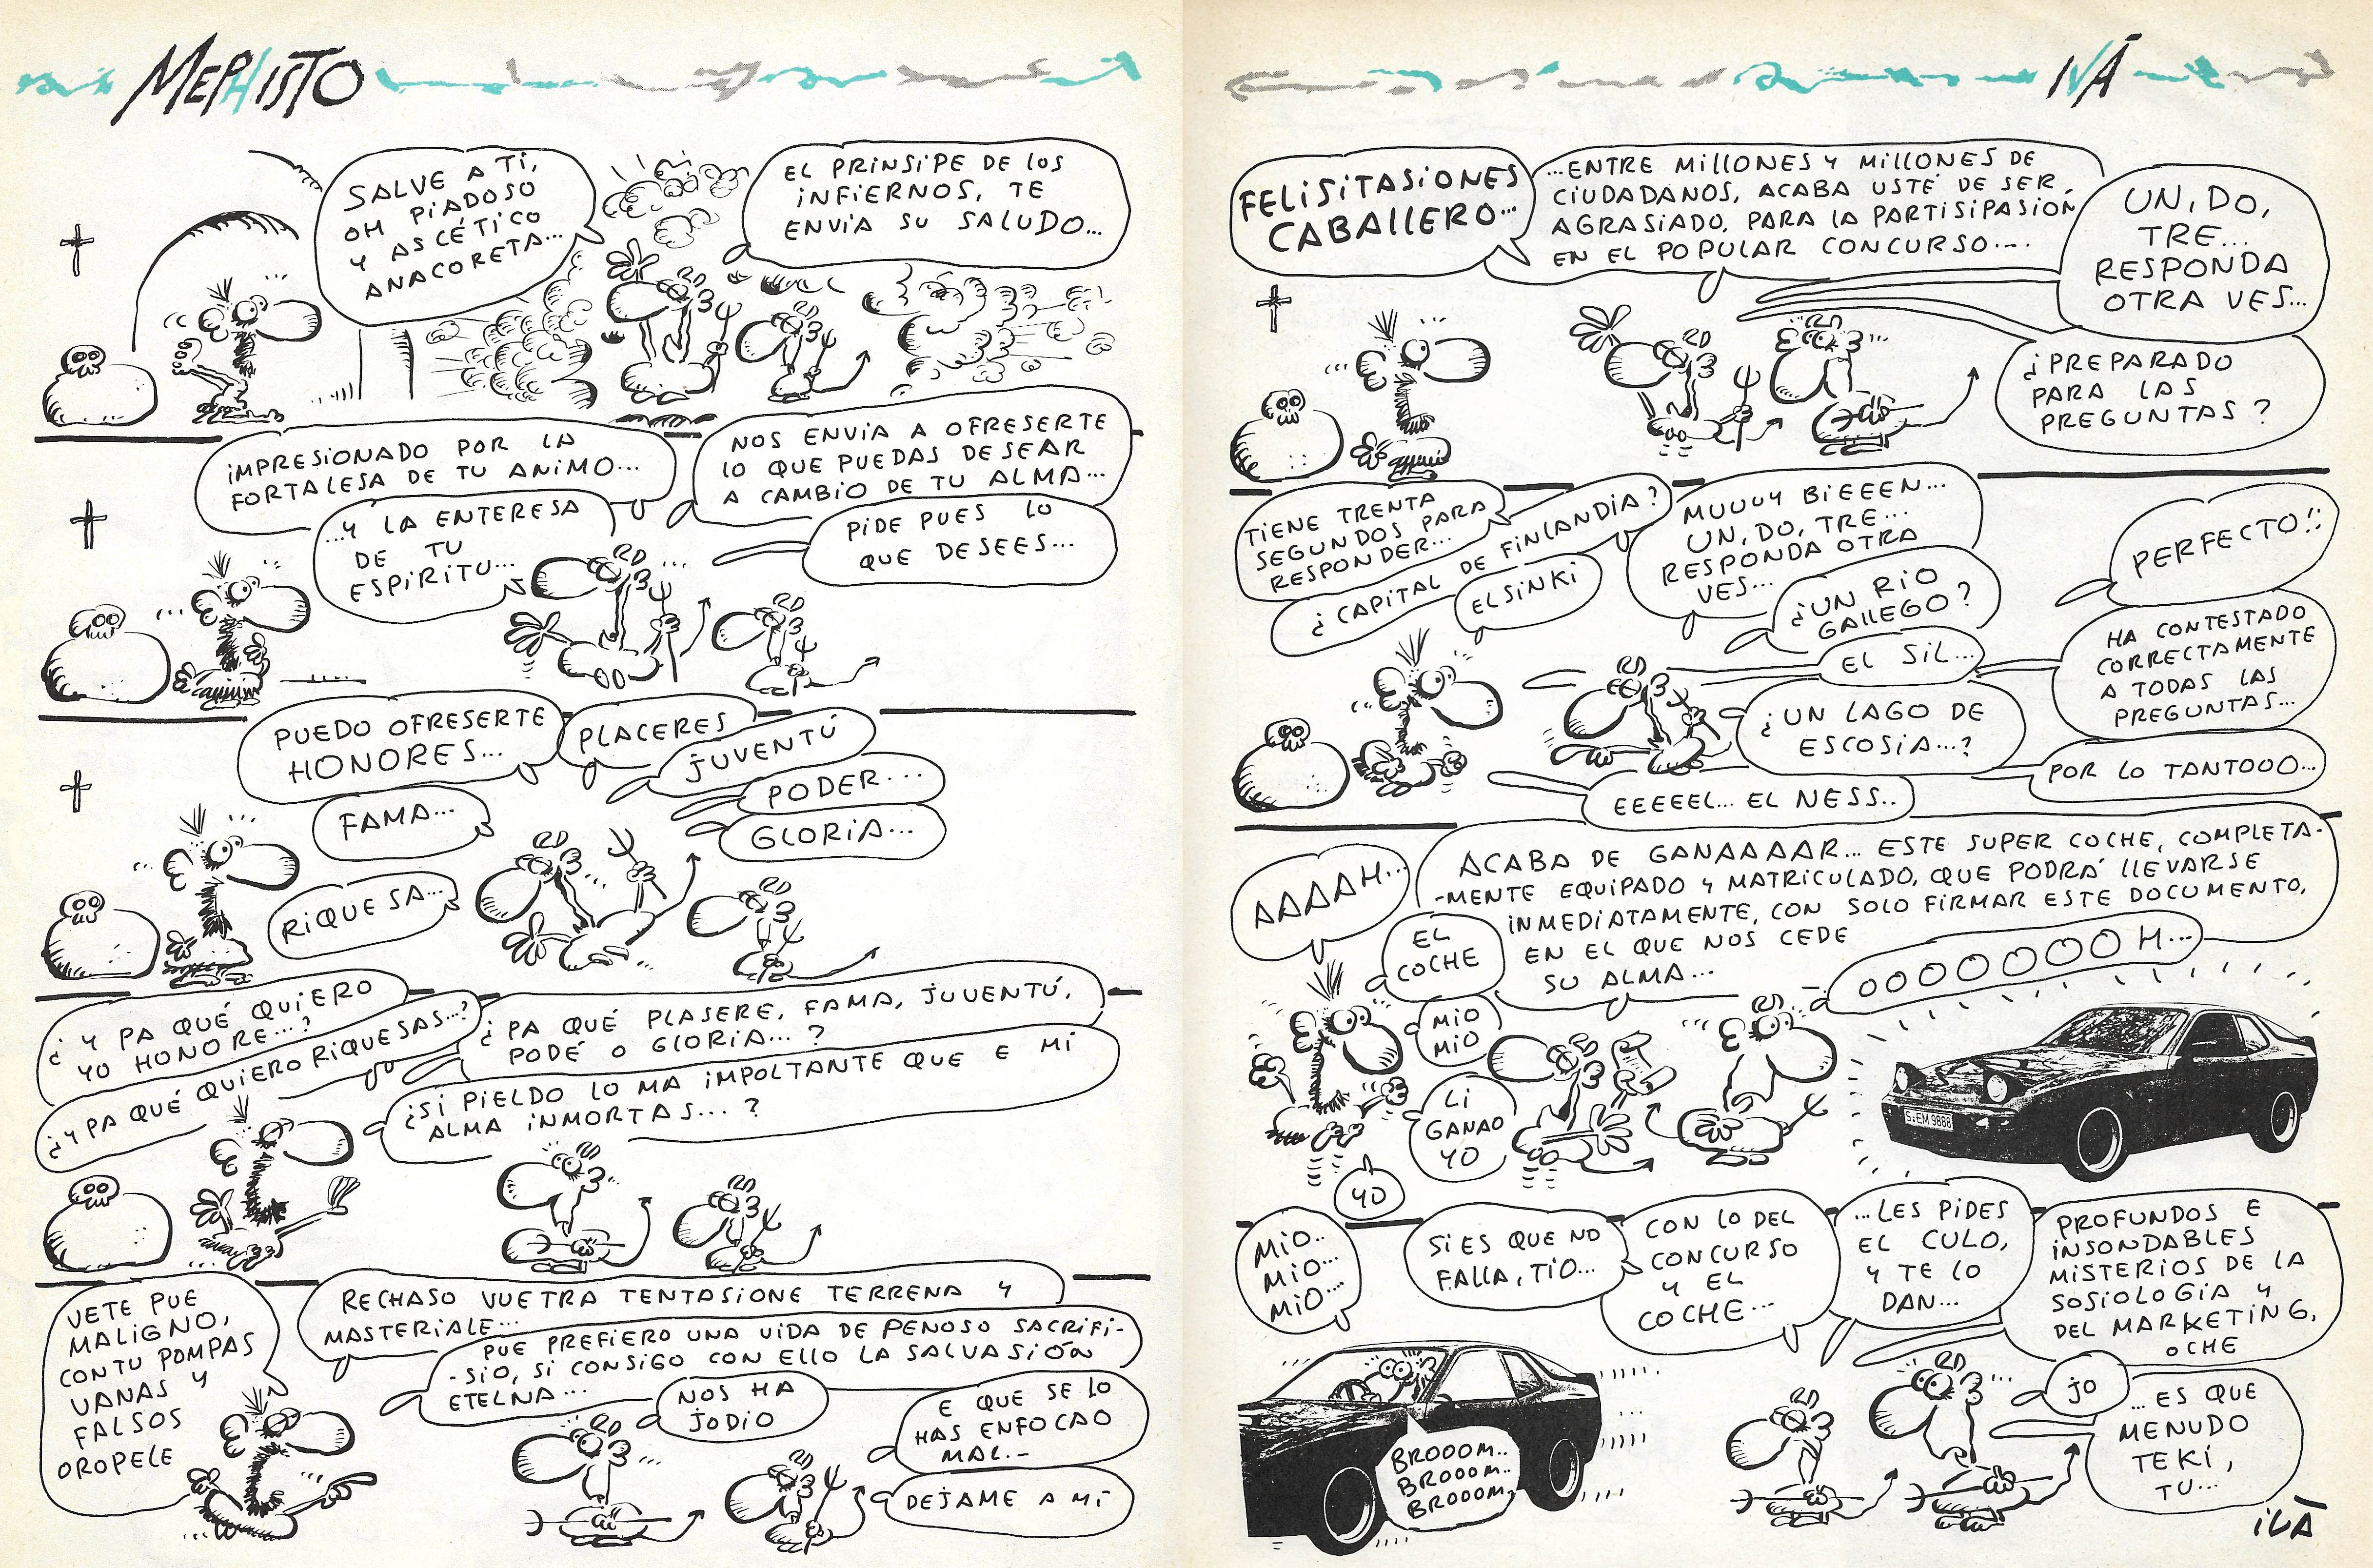 MEPHISTO
SALVE A TI,
OH PIADOSO
Y ASCÉTICO
ANACORETA...
EL PRINSIPE DE LOS
INFIERNOS, TE
ENVIA SU SALUDO...
IMPRESIONADO POR LA
FORTALESA DE TU ANIMO...
...Y LA ENTERESA
DE TU
ESPIRITU...
NOS ENVIA A OFRESERTE
LO QUE PUEDAS DESEAR
A CAMBIO DE TU ALMA...
PIDE PUES LO
QUE DESEES...
PUEDO OFRESERTE
HONORES...
PLACERES
JUVENTÚ
PODER...
GLORIA...
FAMA...
RIQUESA...
¿Y PA QUÉ QUIERO
YO HONORE...?
¿Y PA QUÉ QUIERO RIQUESAS...?
¿PA QUÉ PLASERE, FAMA, JUVENTÚ,
PODÉ O GLORIA...?
¿SI PIELDO LO MA IMPOLTANTE QUE E MI
ALMA INMORTAS...?
VETE PUE
MALIGNO,
CON TU POMPAS
VANAS Y
FALSOS
OROPELE
RECHASO VUETRA TENTASIONE TERRENA Y
MASTERIALE...
PUE PREFIERO UNA VIDA DE PENOSO SACRIFI-
-SIO, SI CONSIGO CON ELLO LA SALVASIÓN
ETELNA...
NOS HA
JODIO
E QUE SE LO
HAS ENFOCAO
MAL.-
DEJAME A MÍ
IVÀ
FELISITASIONES
CABALLERO...
...ENTRE MILLONES Y MILLONES DE
CIUDADANOS, ACABA USTÉ DE SER,
AGRASIADO, PARA LA PARTISIPASION
EN EL POPULAR CONCURSO....
UN, DO,
TRE...
RESPONDA
OTRA VES...
¿PREPARADO
PARA LAS
PREGUNTAS?
TIENE TRENTA
SEGUNDOS PARA
RESPONDER...
¿CAPITAL DE FINLANDIA?
ELSINKI
MUUUY BIEEEN...
UN, DO, TRE...
RESPONDA OTRA
VES...
¿UN RIO
GALLEGO?
EL SIL...
¿UN LAGO DE
ESCOSIA...?
EEEEEL... EL NESS..
PERFECTO!!
HA CONTESTADO
CORRECTAMENTE
A TODAS LAS
PREGUNTAS...
POR LO TANTOOO...
AAAAH...
ACABA DE GANAAAAR... ESTE SUPER COCHE, COMPLETA-
-MENTE EQUIPADO Y MATRICULADO, QUE PODRÁ LLEVARSE
INMEDIATAMENTE, CON SOLO FIRMAR ESTE DOCUMENTO,
EN EL QUE NOS CEDE
SU ALMA...
EL
COCHE
MIO
MIO
LI
GANAO
YO
YO
OOOOOOOH...
S-EM 9888
MIO..
MIO...
MIO...
SI ES QUE NO
FALLA, TIO...
CON LO DEL
CONCURSO
Y EL
COCHE...
...LES PIDES
EL CULO,
Y TE LO
DAN...
PROFUNDOS E
INSONDABLES
MISTERIOS DE LA
SOSIOLOGÍA Y
DEL MARKETING,
OCHE
BROOOM..
BROOOM..
BROOOM..
JO
...ES QUE
MENUDO
TEKI,
TU...
IVÀ